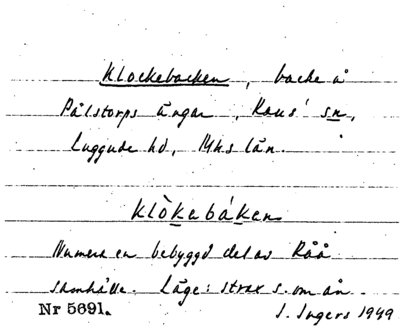 Klockebacken, backe å
Pålstorps ängar, Raus' sn,
Luggude hd, Mhs län.
klòkebáken
Numera en bebyggd del av Råå
samhälle. Läge: strax s. om ån.
Nr 5691. I. Ingers 1949